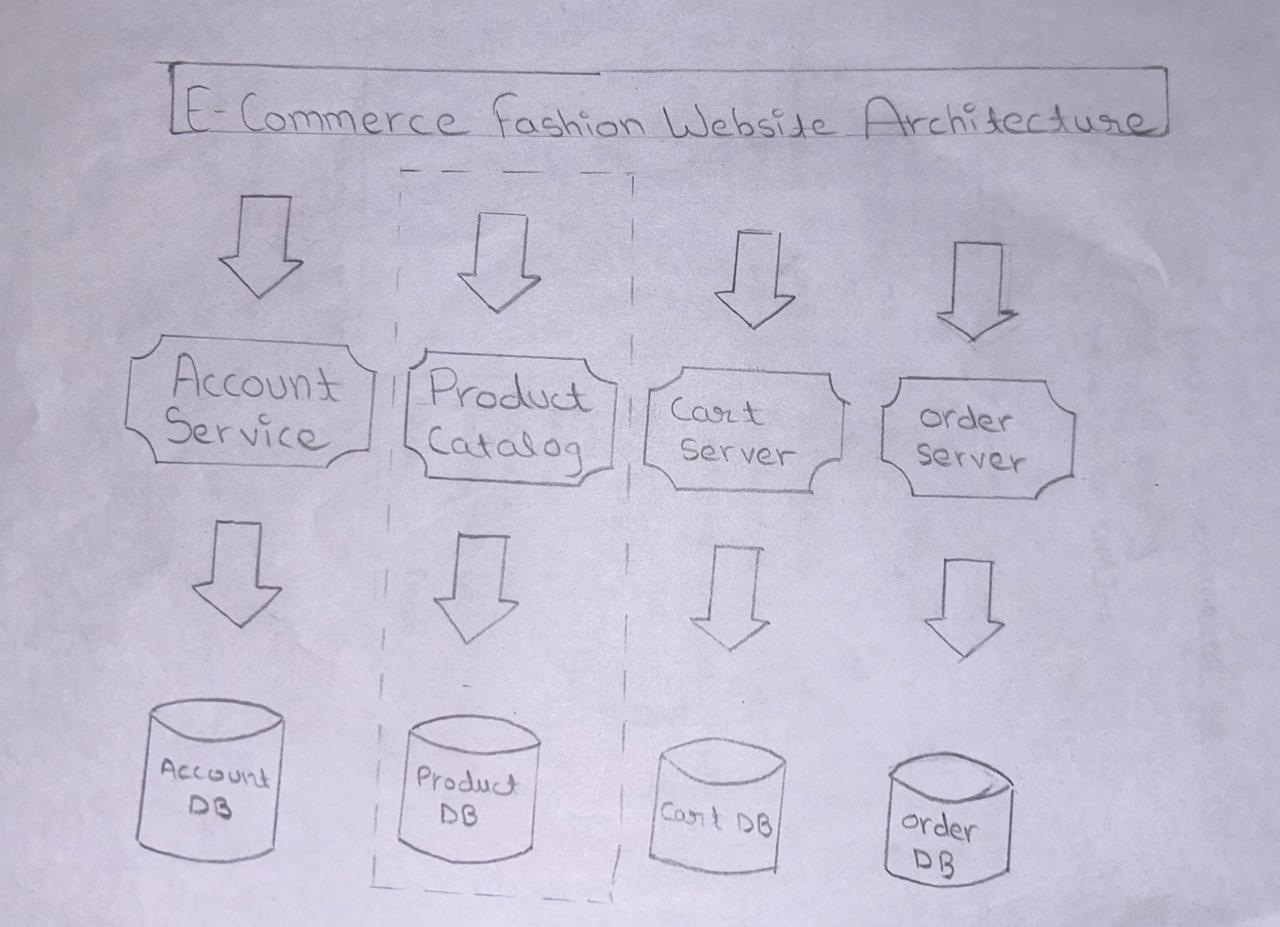 E-Commerce Fashion Website Architecture
Account
Service
Product
Catalog
Cart
Server
order
server
Account
DB
Product
DB
Cart DB
order
DB